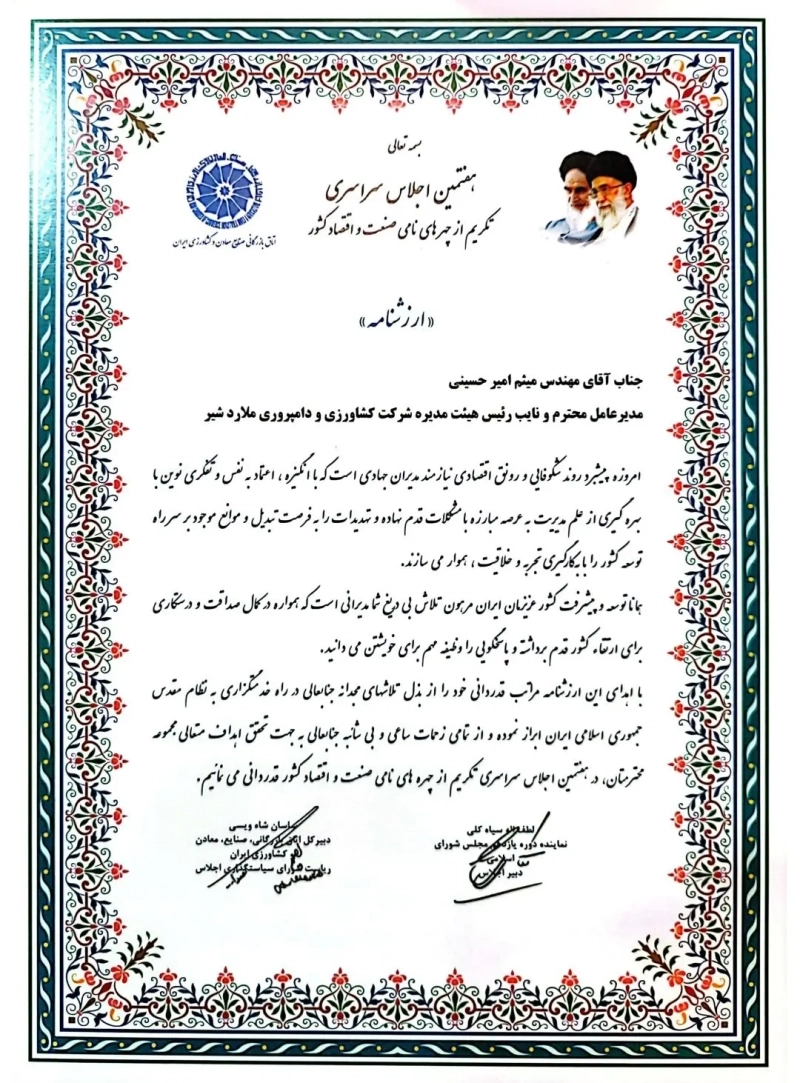 بسمه تعالی
هفتمین اجلاس سراسری
تکریم از چهره های نامی صنعت و اقتصاد کشور
اتاق بازرگانی صنایع معادن و کشاورزی ایران
«ارزشنامه»
جناب آقای مهندس میثم امیر حسینی
مدیرعامل محترم و نایب رئیس هیئت مدیره شرکت کشاورزی و دامپروری ملارد شیر
امروزه پیشبرد روند شکوفایی و رونق اقتصادی نیازمند مدیران جهادی است که با انگیزه ، اعتماد به نفس و تفکری نوین با
بهره گیری از علم مدیریت به عرصه مبارزه با مشکلات قدم نهاده و تهدیدات را به فرصت تبدیل و موانع موجود بر سر راه
توسعه کشور را با بکارگیری تجربه و خلاقیت ، هموار می سازند.
همانا توسعه و پیشرفت کشور عزیزمان ایران مرهون تلاش بی دریغ شما مدیرانی است که همواره در کمال صداقت و درستکاری
برای ارتقاء کشور قدم برداشته و پاسخگویی را وظیفه مهم برای خویشتن می دانید.
با اهدای این ارزشنامه مراتب قدردانی خود را از بذل تلاشهای مجدانه جنابعالی در راه خدمتگزاری به نظام مقدس
جمهوری اسلامی ایران ابراز نموده و از تمامی زحمات ساعی و بی شائبه جنابعالی به جهت تحقق اهداف متعالی مجموعه
محترمتان، در هفتمین اجلاس سراسری تکریم از چهره های نامی صنعت و اقتصاد کشور قدردانی می نمائیم.
لطف‌اله سیاه کلی
نماینده دوره یازدهم مجلس شورای
اسلامی
دبیر اجلاس
ساسان شاه ویسی
دبیرکل اتاق بازرگانی، صنایع، معادن
و کشاورزی ایران
ریاست شورای سیاستگذاری اجلاس